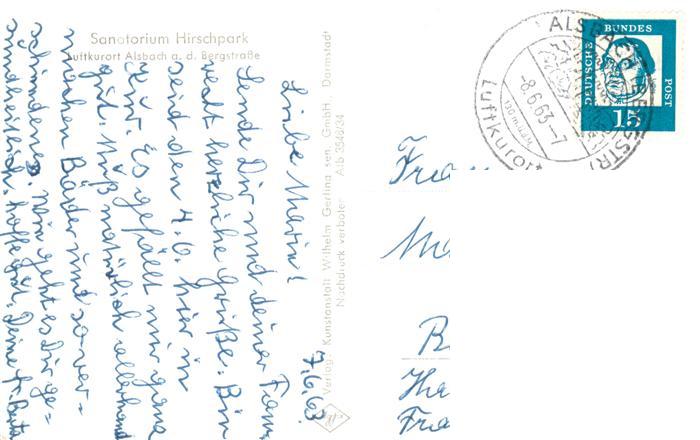 Sanatorium Hirschpark
Luftkurort Alsbach a. d. Bergstraße
Verlag: Kunstanstalt Wilhelm Gerling sen. GmbH., Darmstadt
Nachdruck verboten
7.6.63
Liebe Maria!
Sende Dir und deiner Fam.
recht herzliche Grüße. Bin
seid den 4.6. hier in
Kur. Es gefällt mir ganz
gut. Muß natürlich allerhand
machen Bäder und so ver-
schiedenes. Wie geht es Dir ge-
sundheitlich, hoffe gut. Deine
ALSBACH BERGSTR
-8.6.63-7
Luftkurort
DEUTSCHE BUNDES POST
15
Fra
Ma
B
Fra